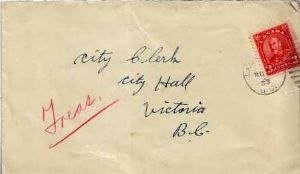 CANADA
City Clerk
City Hall
Victoria
B.C.
Treas.